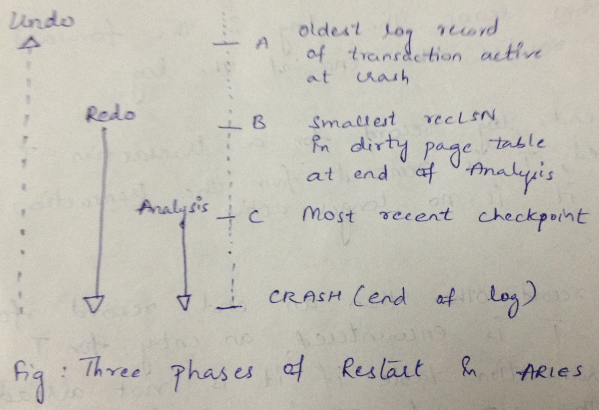 Undo
A oldest log record
of transaction active
at crash
Redo
B Smallest recLSN
in dirty page table
at end of Analysis
Analysis
C Most recent checkpoint
CRASH (end of log)
Fig : Three phases of Restart in ARIES